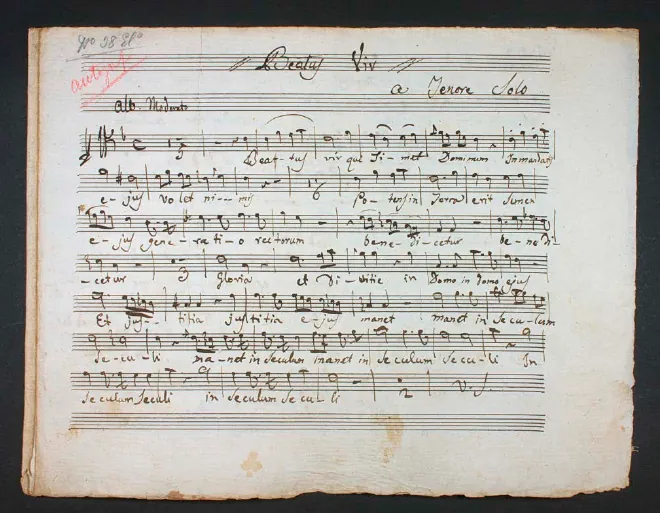 Nº 38
autogr.
Beatus Vir
a Tenore Solo
Allo. Moderato
3 Beat-tus vir qui Ti-met Dominum In mandatis
e-jus volet ni-mis 6 Po-tens in Terra erit semen
e-jus gene-ra-ti-o rectorum bene-di-cetur be-ne di
-cetur 3 Gloria et Di-vitie in Domo in domo ejus
Et jus-titia justitia e-jus manet manet in se cu-lum
se-cu-li ma-net in seculum manet in se culum se cu-li In
se culum seculi in seculum se cu-li 2 V. S.